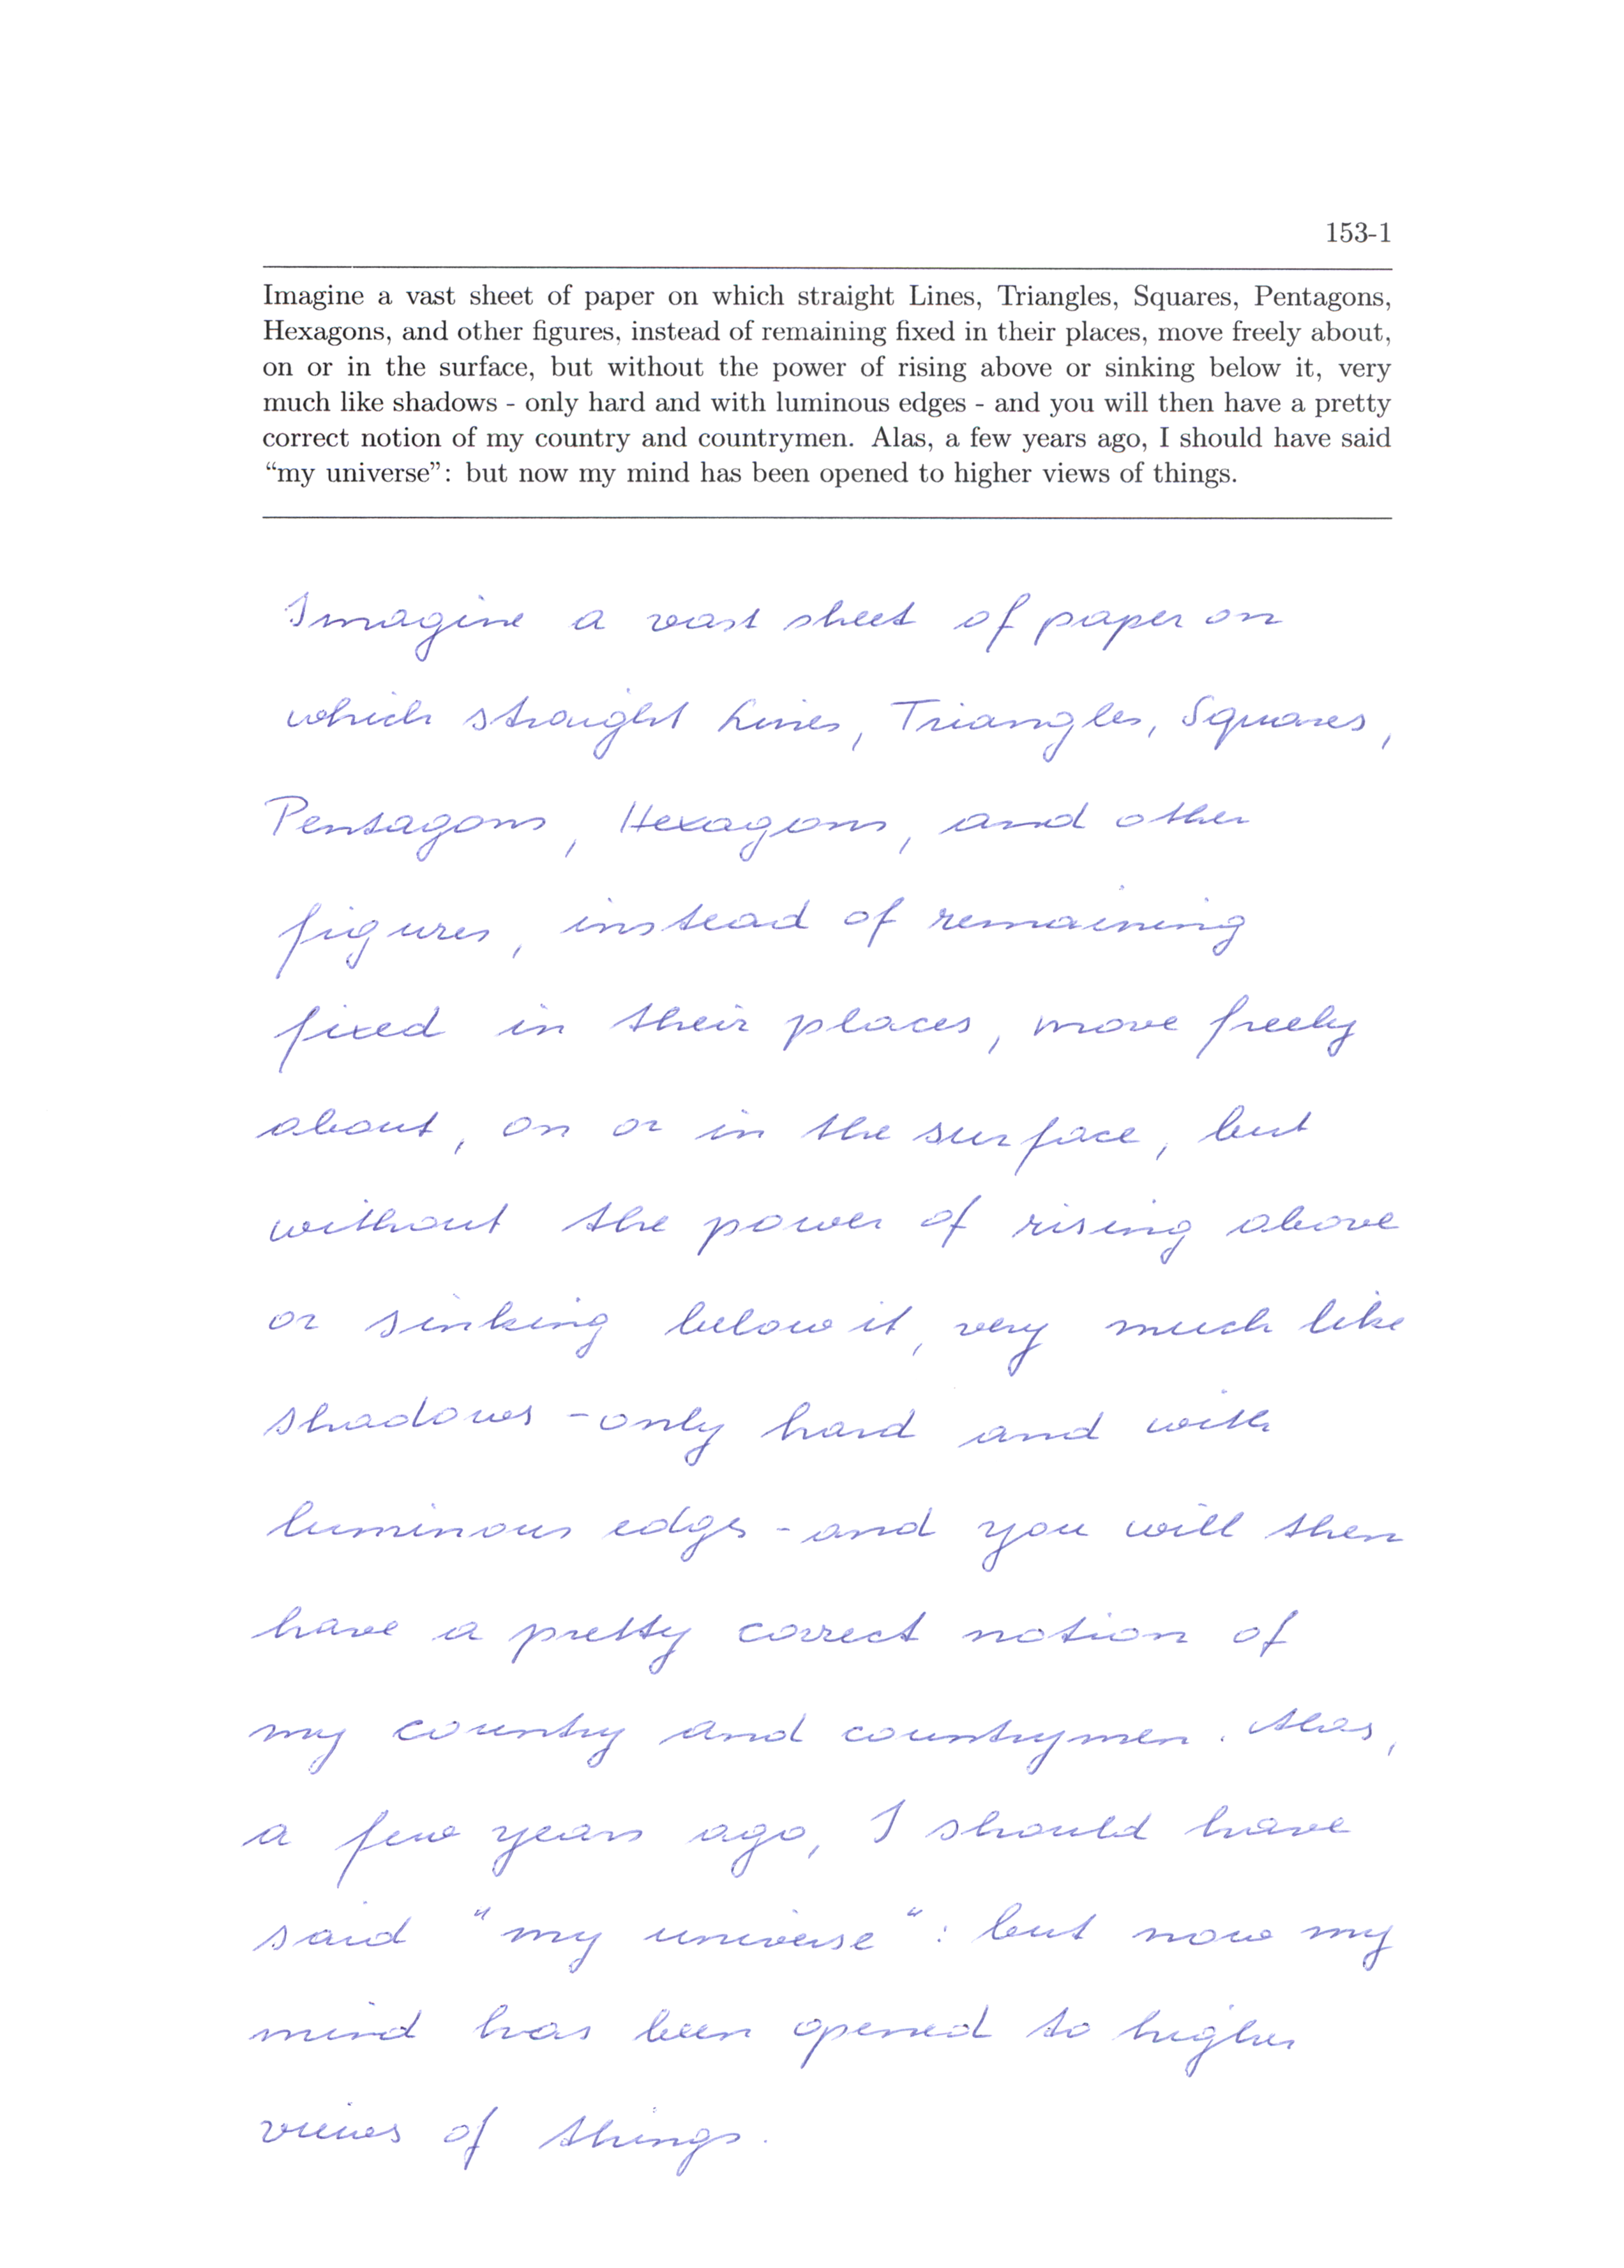 153-1
Imagine a vast sheet of paper on which straight Lines, Triangles, Squares, Pentagons,
Hexagons, and other figures, instead of remaining fixed in their places, move freely about,
on or in the surface, but without the power of rising above or sinking below it, very
much like shadows - only hard and with luminous edges - and you will then have a pretty
correct notion of my country and countrymen. Alas, a few years ago, I should have said
“my universe”: but now my mind has been opened to higher views of things.
Imagine a vast sheet of paper on
which straight Lines, Triangles, Squares,
Pentagons, Hexagons, and other
figures, instead of remaining
fixed in their places, move freely
about, on or in the surface, but
without the power of rising above
or sinking below it, very much like
shadows - only hard and with
luminous edges - and you will then
have a pretty correct notion of
my country and countrymen. Alas,
a few years ago, I should have
said "my universe": but now my
mind has been opened to higher
views of things.